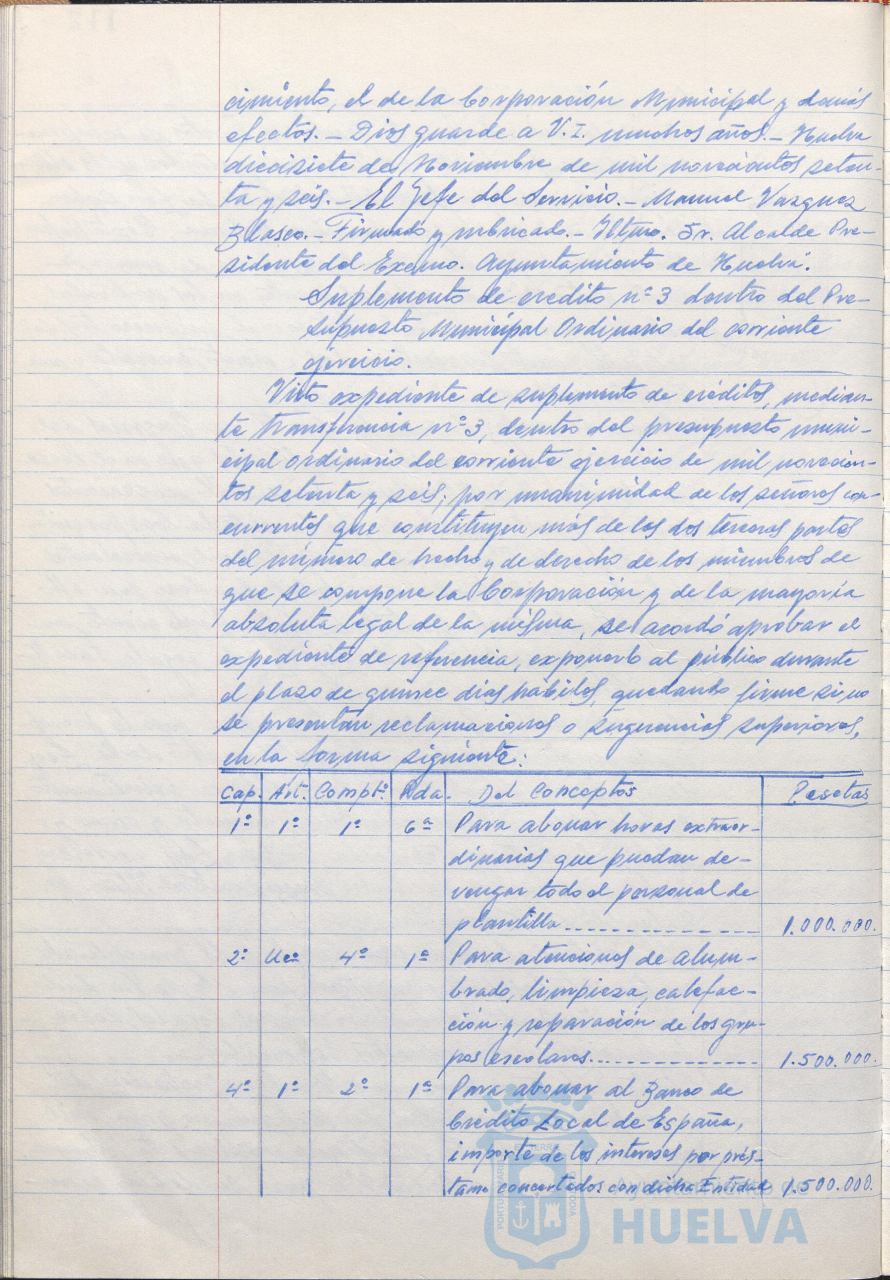 cimiento, el de la Corporación Municipal y demás
efectos.- Dios guarde a V.I. muchos años.- Huelva
diecisiete de Noviembre de mil novecientos seten-
ta y seis.- El Jefe del Servicio.- Manuel Vazquez
Blasco.- Firmado y rubricado.- Iltmo. Sr. Alcalde Pre-
sidente del Excmo. Ayuntamiento de Huelva".
Suplemento de crédito nº 3 dentro del Pre-
supuesto Municipal Ordinario del corriente
ejercicio.
Visto expediente de suplemento de créditos, median-
te transferencia nº 3, dentro del presupuesto muni-
cipal ordinario del corriente ejercicio de mil novecien-
tos setenta y seis; por unanimidad de los señores con-
currentes que constituyen más de las dos terceras partes
del número de hecho y de derecho de los miembros de
que se compone la Corporación y de la mayoría
absoluta legal de la misma, se acordó aprobar el
expediente de referencia, exponerlo al público durante
el plazo de quince días hábiles, quedando firme si no
se presentan reclamaciones o sugerencias superiores,
en la forma siguiente:
Cap. Art. Compt. Pda. Del Conceptos Pesetas
1º 1º 1º 6ª Para abonar horas extraor-
dinarias que puedan de-
vengar todo el personal de
plantilla.............. 1.000.000.
2º Uco 4º 1ª Para atenciones de alum-
brado, limpieza, calefac-
ción y reparación de los gru-
pos escolares.............. 1.500.000.
4º 1º 2º 1ª Para abonar al Banco de
Crédito Local de España,
importe de los intereses por prés-
tamo concertados con dicha Entidad 1.500.000.
HUELVA